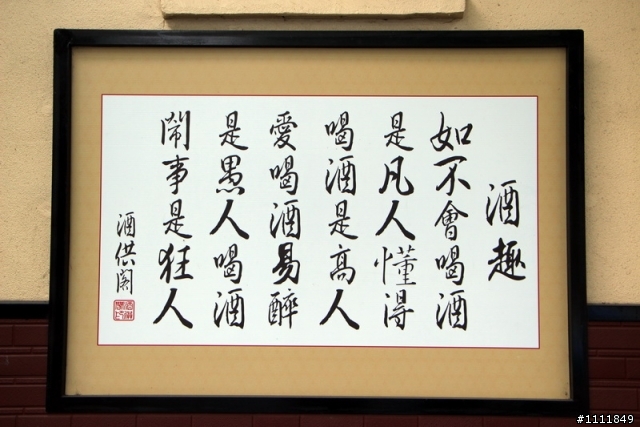 酒趣
如不會喝酒
是凡人懂得
喝酒是高人
愛喝酒易醉
是愚人喝酒
鬧事是狂人
酒供閣
#1111849